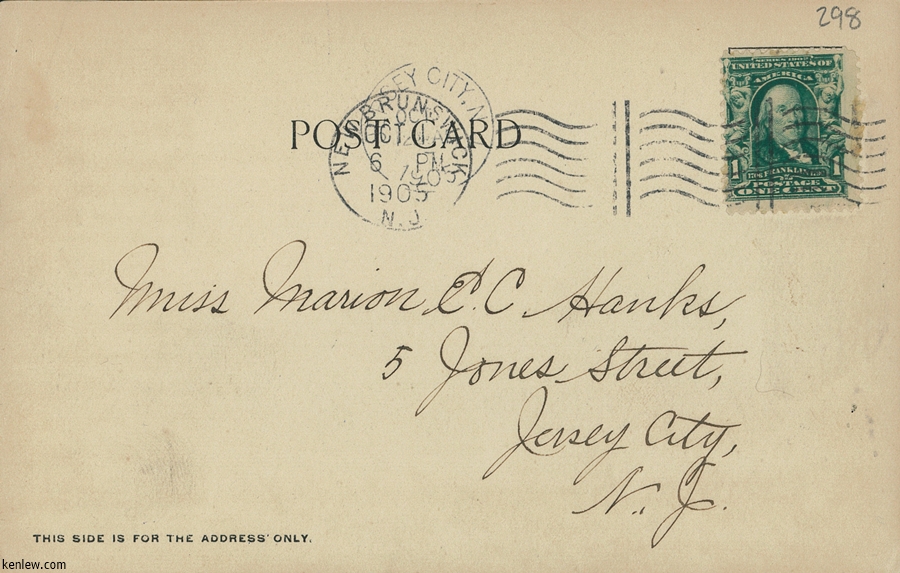 298
SERIES 1902
UNITED STATES OF
AMERICA
1 1
FRANKLIN
POSTAGE
ONE CENT
EY CITY, N
NEW BRUNSWICK
OCT
6 PM
1905
N.J.
POST CARD
Miss Marion E. C. Hanks,
5 Jones Street,
Jersey City,
N. J.
THIS SIDE IS FOR THE ADDRESS ONLY.
kenlew.com